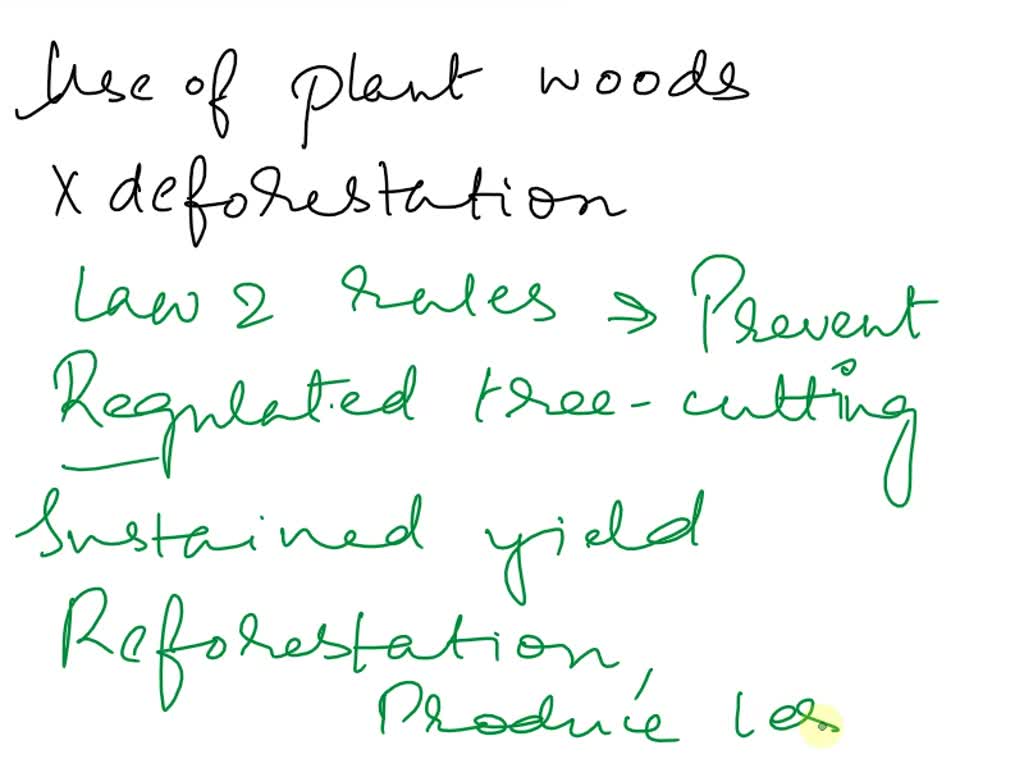 Use of plant woods
X deforestation
Law 2 rules ⇒ Prevent
Regulated tree-cutting
Sustained yield
Reforestation,
Produce